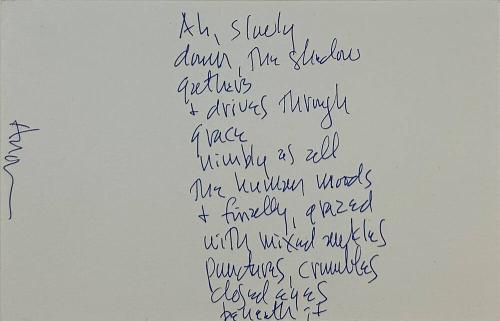 Ah, slowly
down, the shadow
gathers
+ drives through
grace
nimbly as all
the human moods
+ finally, grazed
with mixed
punctures, crumbles
closed eyes
beneath it